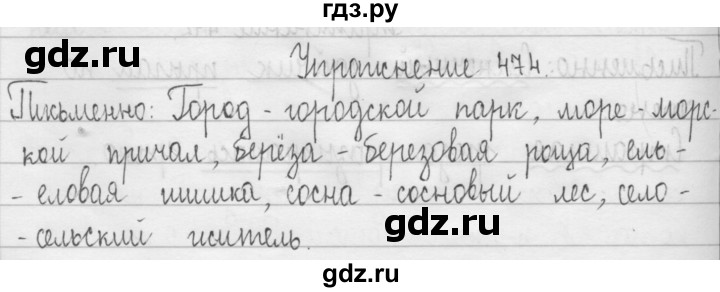 гдз.ру
gdz.ru
gdz.ru
Упражнение 474.
Письменно: Город - городской парк, море - морс-
кой причал, берёза - березовая роща, ель-
- еловая шишка, сосна - сосновый лес, село -
- сельский житель.
gdz.ru
gdz.ru
gdz.ru